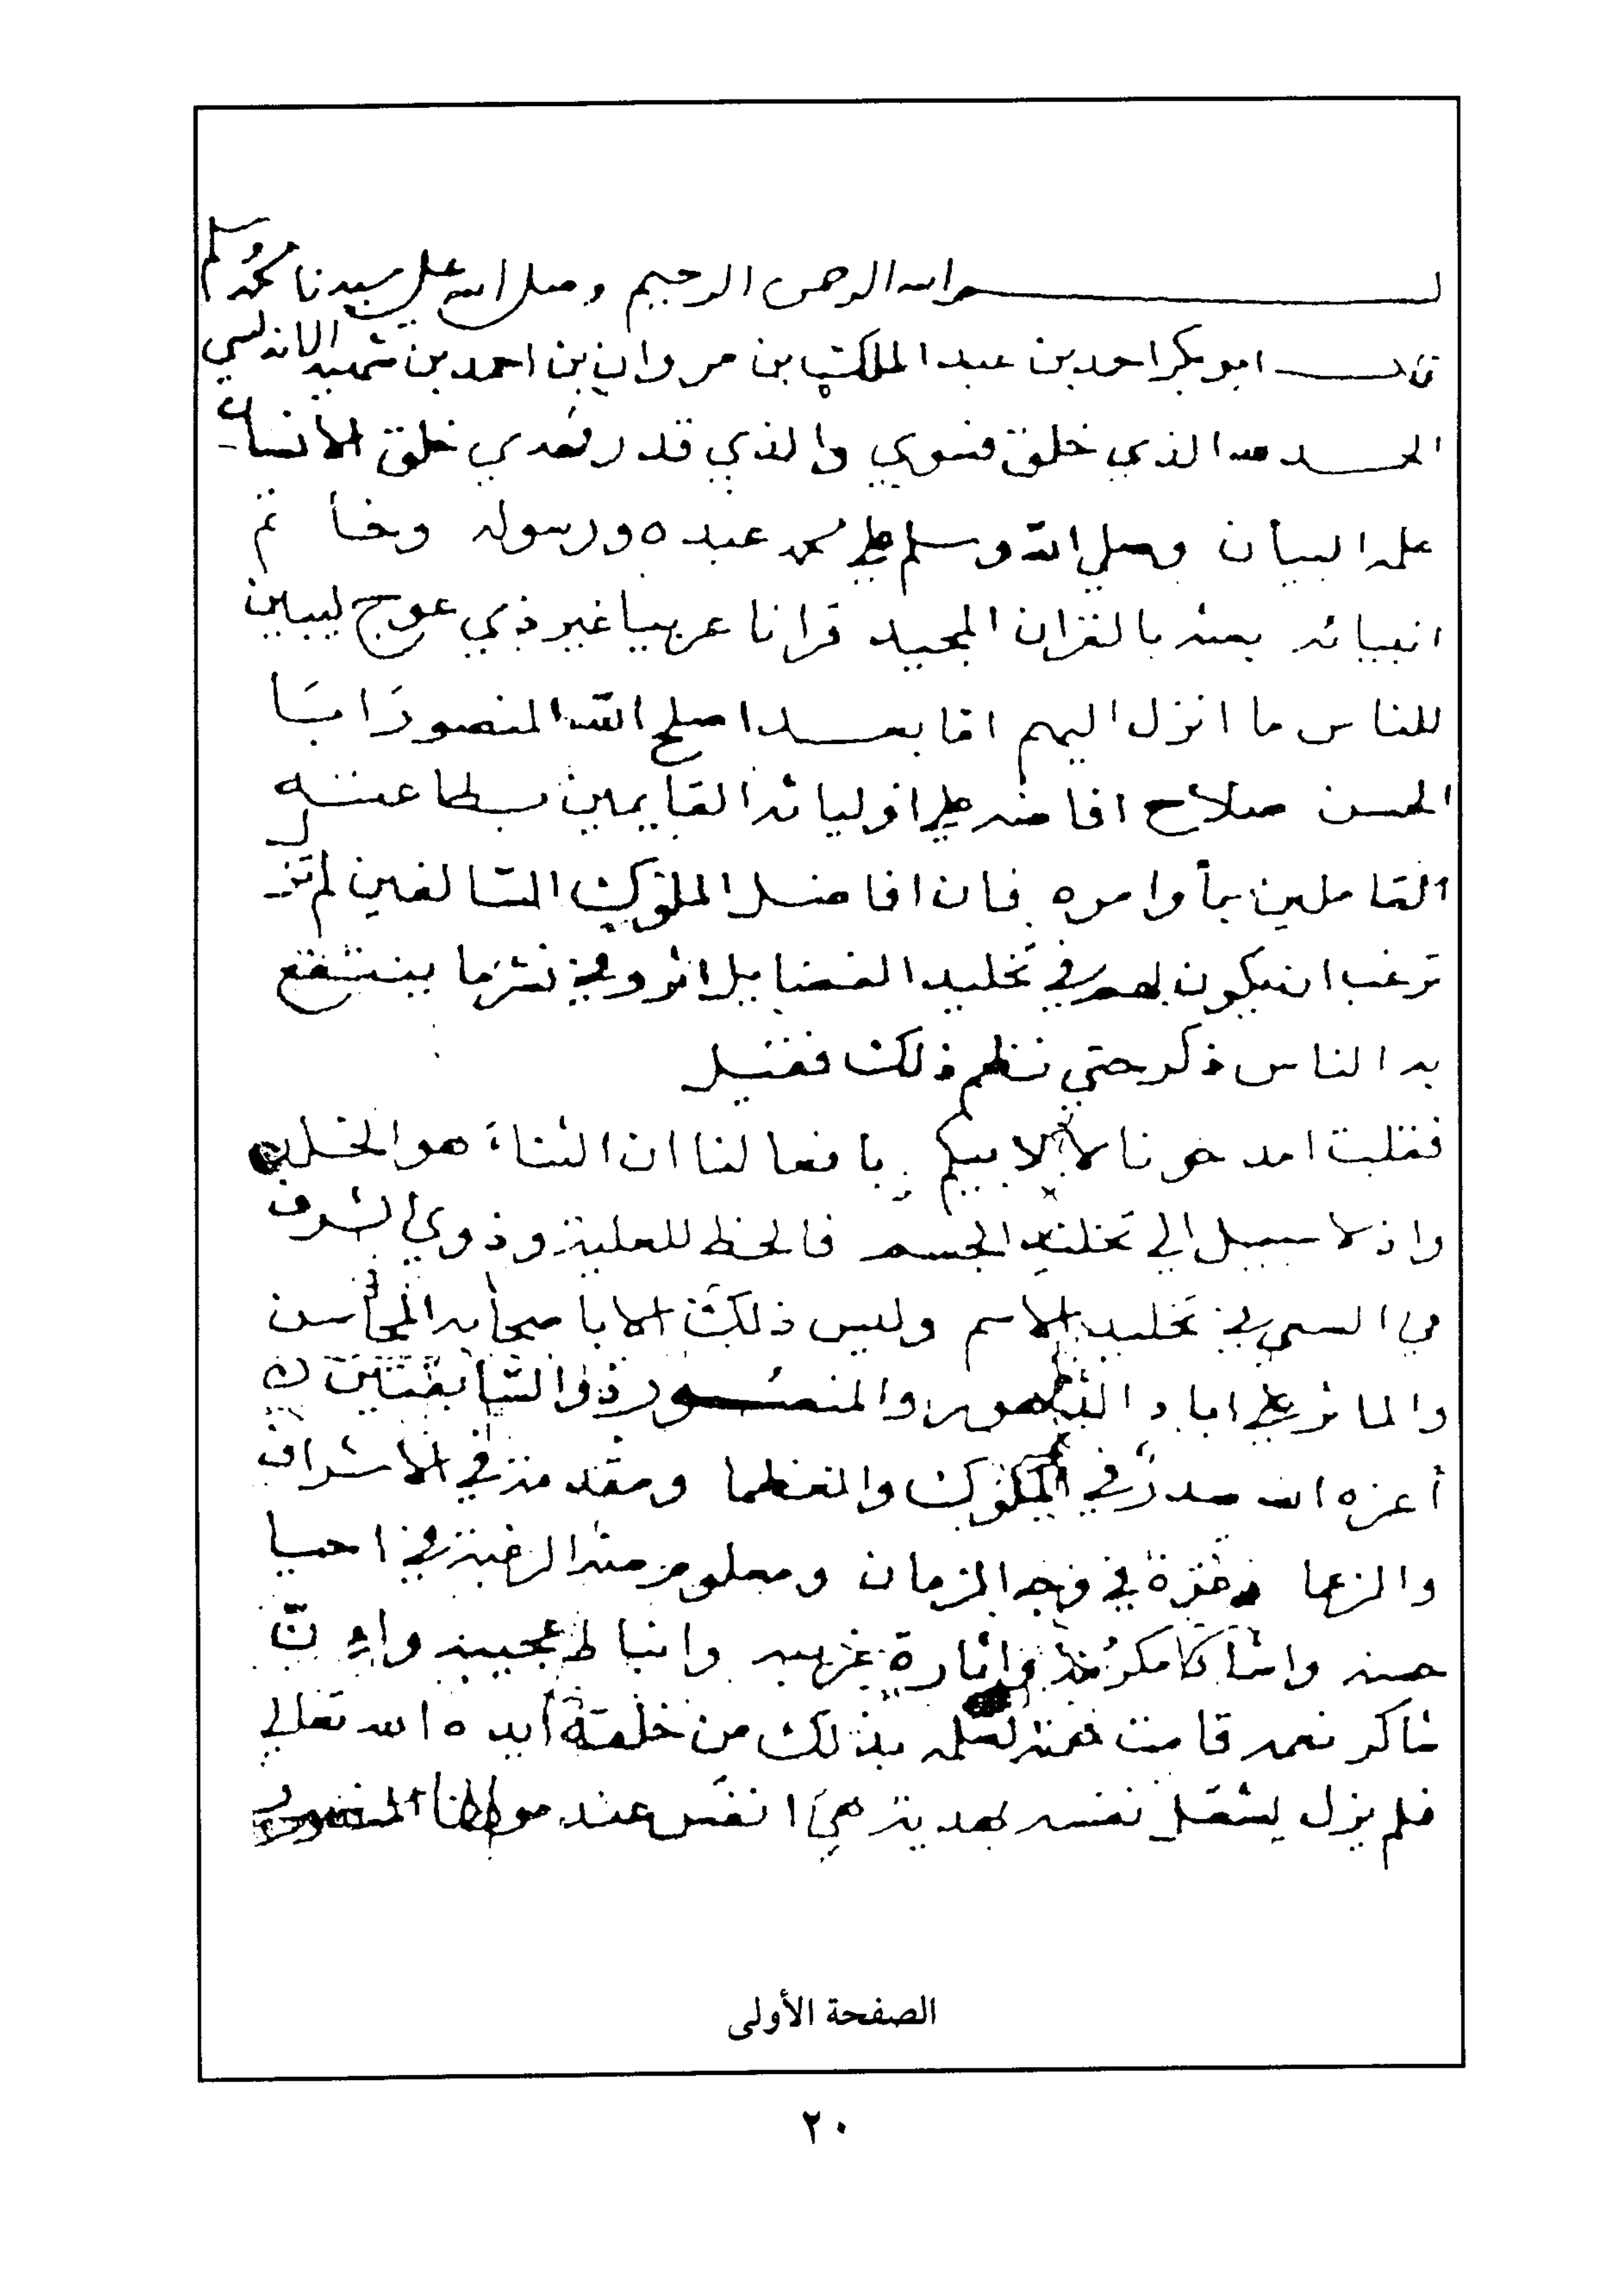 بسم الله الرحمن الرحيم وصلى الله على سيدنا محمد وسلم
قال ابو بكر احمد بن عبد الملك بن مروان بن احمد بن شهيد الاندلسي
الحمد لله الذي خلق فسوي والذي قدر فهدي خلق الانسان
علمه البيان وصلي الله وسلم علي محمد عبده ورسوله وخاتم
انبيائه بعثه بالقران المجيد قرانا عربيا غير ذي عوج ليبين
للناس ما انزل اليهم اما بعد اصلح الله المنصور ابا
الحسن صلاح افاضه علي اوليائه القايمين بطاعته
العاملين بأوامره فان افاضل الملوك السالفين لم تز
ترغب ان يكون لهم في تخليد الفضايل اثر وفي نشر ما ينتفع
به الناس ذكر حتي نظم ذلك فقيل
فقلت امدحونا لا ابا لابيكم بافعالنا ان الثناء هو الخلد
واذ لا سبيل الي تخليد الجسم فالحظ للعلية وذوي الشرف
في السعي في تخليد الاسم وليس ذلك الا باصحابه المحاسن
والماثر علي اباد الدهور والمنصور ذو السابقتين
أعزه الله صدر في الملوك والعظما ومقدمة في الاشراف
والزعما وغرة في وجه الزمان ومعلوم منه الرغبة في احيا
حسنة وانشا مكرمة واثارة غريبه وانباط عجيبة وان
شاكر نعمه قامت همته بذلك من خلقه أيده الله تعالي
فلم يزل يشغل نفسه بهدية هي انفس عند مولانا المنصور
الصفحة الأولى
٢٠